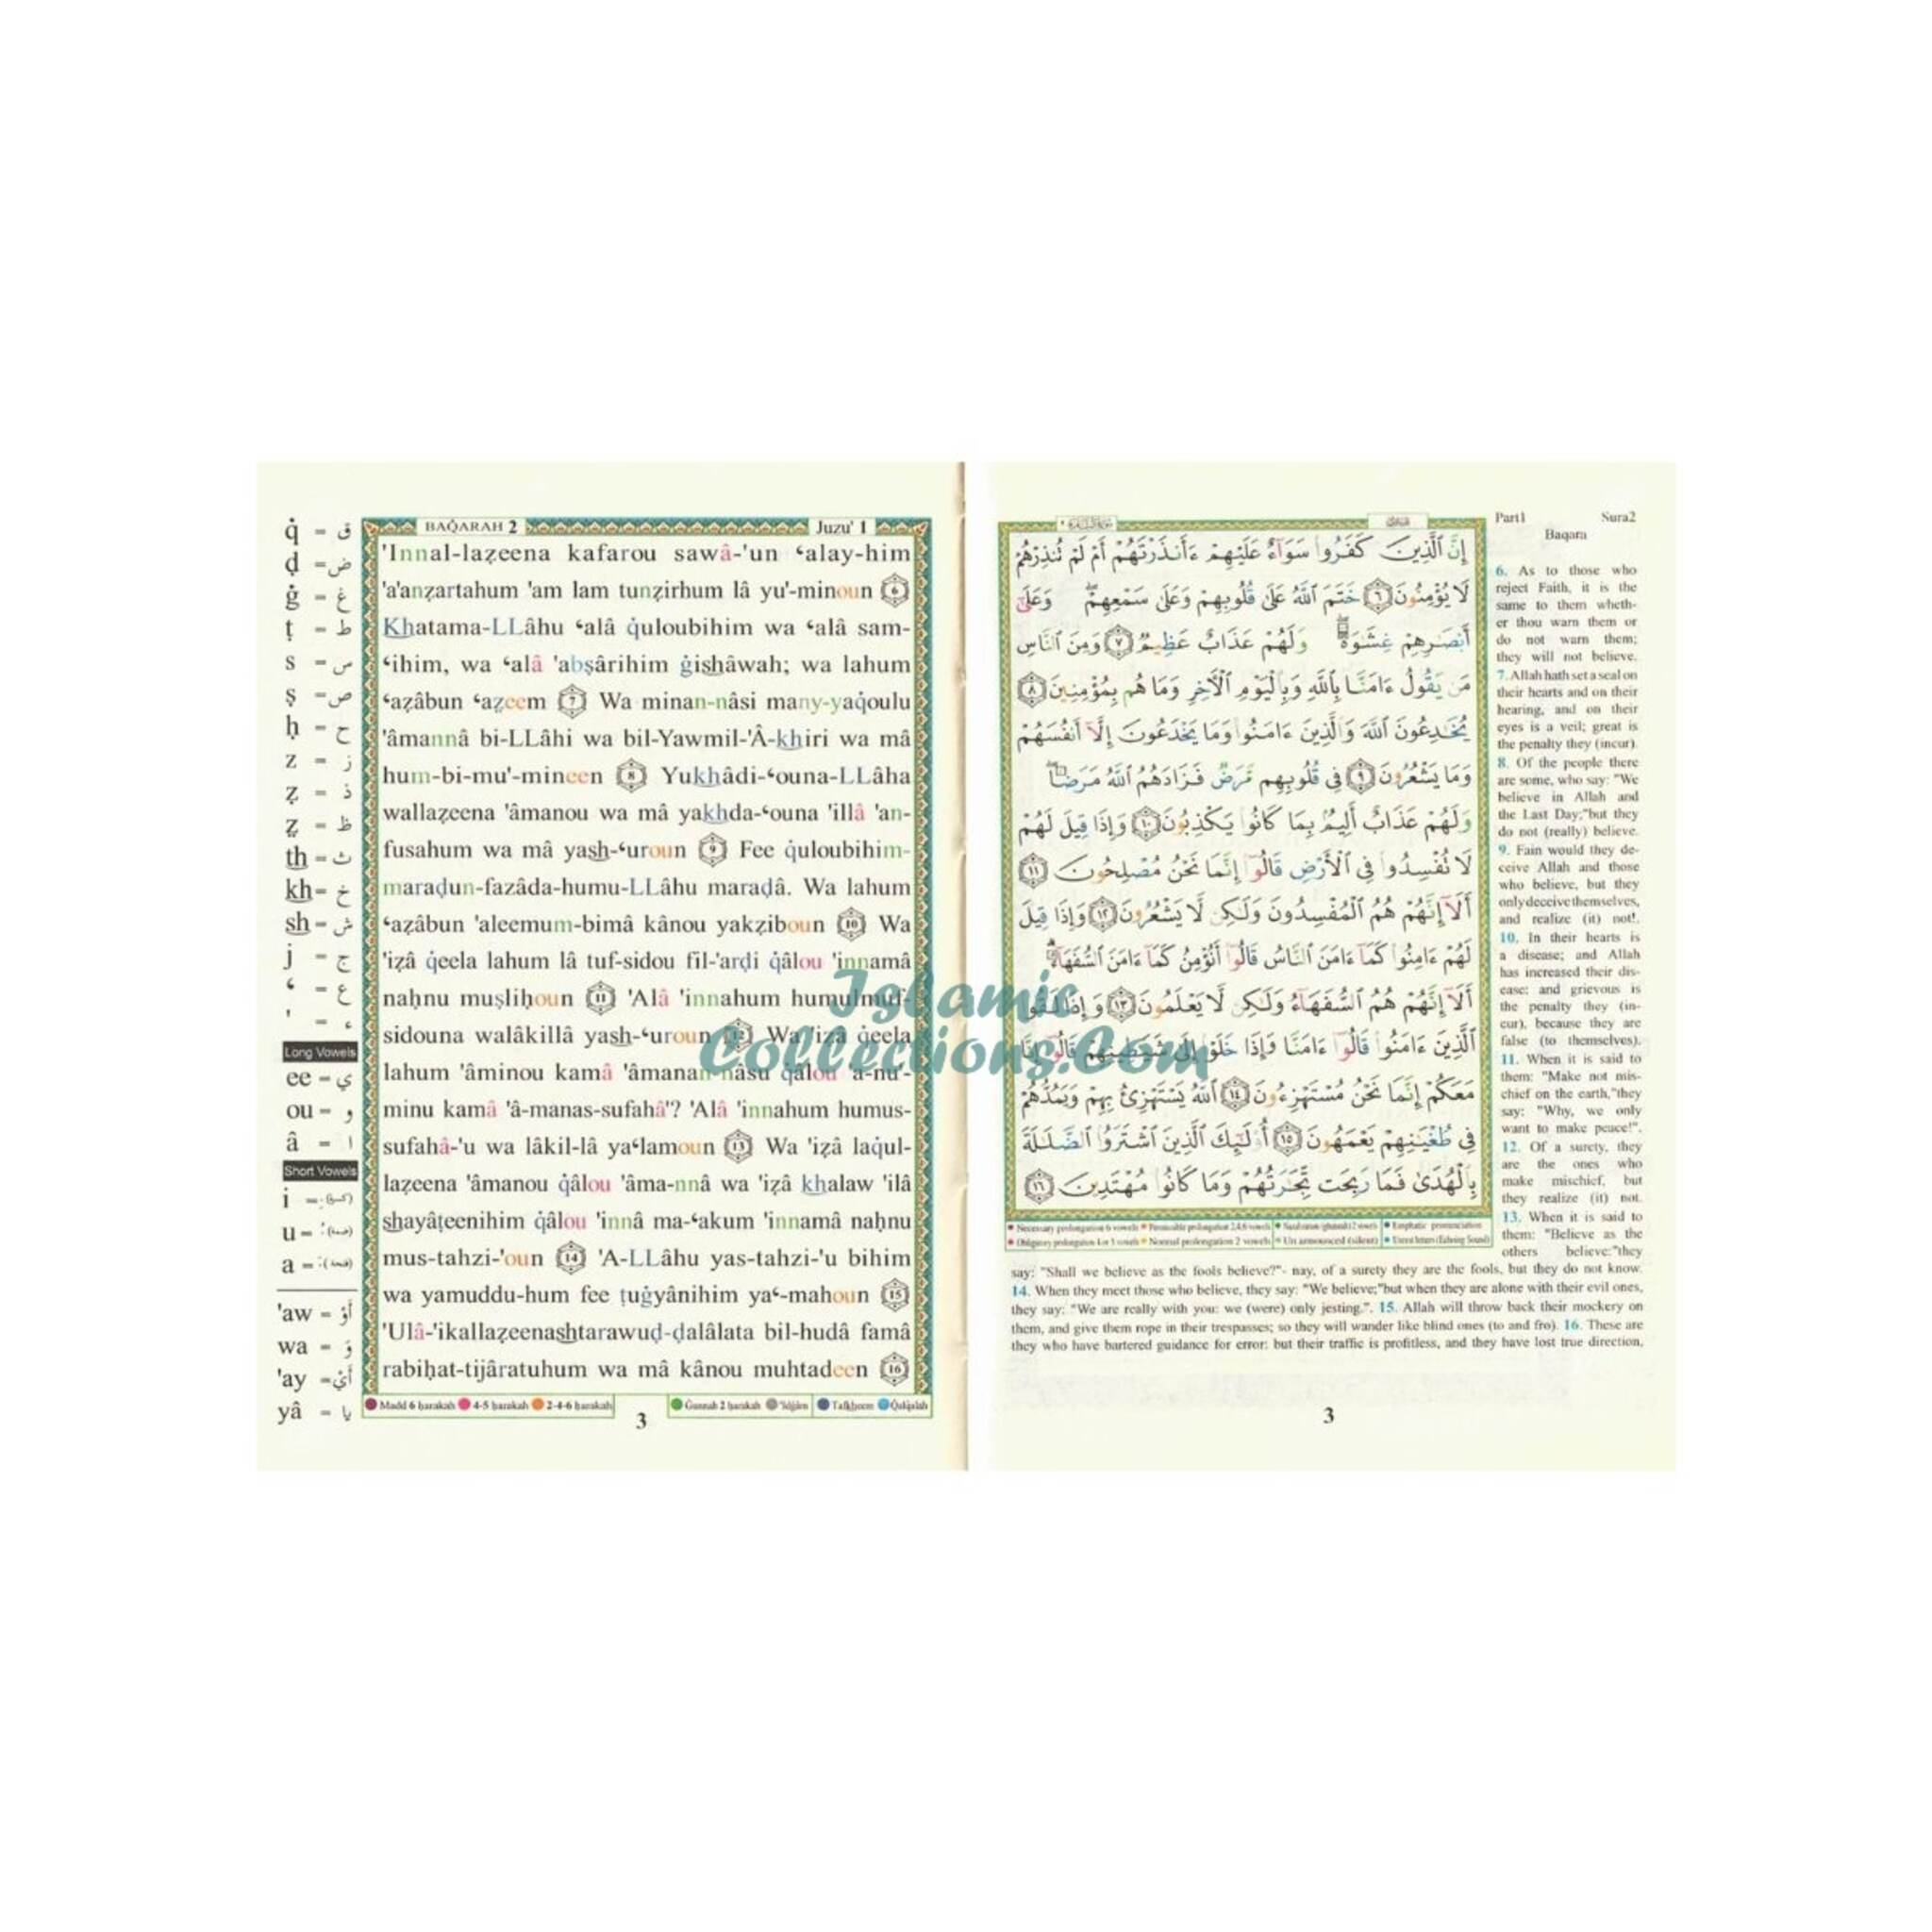 q̇ = ق
ḍ = ض
ġ = غ
ṭ = ط
s = س
ṣ = ص
ḥ = ح
z = ز
ẓ = ذ
ẓ = ظ
th = ث
kh = خ
sh = ش
j = ج
‘ = ع
' = ء
Long Vowels
ee = ي
ou = و
â = ا
Short Vowels
i =
u =
a =
'aw = أَوْ
wa = وَ
'ay = أَيْ
yâ = يا
BAQ̇ARAH 2 Juzu' 1
'Innal-laẓeena kafarou sawâ-'un ‘alay-him
'a'anẓartahum 'am lam tunẓirhum lâ yu'-minoun 6
Khatama-LLâhu ‘alâ q̇uloubihim wa ‘alâ sam-
‘ihim, wa ‘alâ 'abṣârihim ġishâwah; wa lahum
‘aẓâbun ‘aẓeem 7 Wa minan-nâsi many-yaq̇oulu
'âmannâ bi-LLâhi wa bil-Yawmil-'Â-khiri wa mâ
hum-bi-mu'-mineen 8 Yukhâdi-‘ouna-LLâha
wallaẓeena 'âmanou wa mâ yakhda-‘ouna 'illâ 'an-
fusahum wa mâ yash-‘uroun 9 Fee q̇uloubihim-
maraḍun-fazâda-humu-LLâhu maraḍâ. Wa lahum
‘aẓâbun 'aleemum-bimâ kânou yakẓiboun 10 Wa
'iẓâ q̇eela lahum lâ tuf-sidou fil-'arḍi q̇âlou 'innamâ
naḥnu muṣliḥoun 11 'Alâ 'innahum humulmuf-
sidouna walâkillâ yash-‘uroun 12 Wa 'iẓâ q̇eela
lahum 'âminou kamâ 'âmanan-nâsu q̇âlou 'a-nu'-
minu kamâ 'â-manas-sufahâ'? 'Alâ 'innahum humus-
sufahâ-'u wa lâkil-lâ ya‘lamoun 13 Wa 'iẓâ laq̇ul-
laẓeena 'âmanou q̇âlou 'âma-nnâ wa 'iẓâ khalaw 'ilâ
shayâṭeenihim q̇âlou 'innâ ma-‘akum 'innamâ naḥnu
mus-tahzi-'oun 14 'A-LLâhu yas-tahzi-'u bihim
wa yamuddu-hum fee ṭuġyânihim ya‘-mahoun 15
'Ulâ-'ikallaẓeenashtarawuḍ-ḍalâlata bil-hudâ famâ
rabiḥat-tijâratuhum wa mâ kânou muhtadeen 16
Madd 6 ḥarakah 4-5 ḥarakah 2-4-6 ḥarakah Ġunnah 2 ḥarakah 'Idġâm Tafkheem Q̇alq̇alah
3
إِنَّ ٱلَّذِينَ كَفَرُوا۟ سَوَآءٌ عَلَيْهِمْ ءَأَنذَرْتَهُمْ أَمْ لَمْ تُنذِرْهُمْ
لَا يُؤْمِنُونَ ٦ خَتَمَ ٱللَّهُ عَلَىٰ قُلُوبِهِمْ وَعَلَىٰ سَمْعِهِمْ ۖ وَعَلَىٰٓ
أَبْصَـٰرِهِمْ غِشَـٰوَةٌ ۖ وَلَهُمْ عَذَابٌ عَظِيمٌ ٧ وَمِنَ ٱلنَّاسِ
مَن يَقُولُ ءَامَنَّا بِٱللَّهِ وَبِٱلْيَوْمِ ٱلْـَٔاخِرِ وَمَا هُم بِمُؤْمِنِينَ ٨
يُخَـٰدِعُونَ ٱللَّهَ وَٱلَّذِينَ ءَامَنُوا۟ وَمَا يَخْدَعُونَ إِلَّآ أَنفُسَهُمْ
وَمَا يَشْعُرُونَ ٩ فِى قُلُوبِهِم مَّرَضٌ فَزَادَهُمُ ٱللَّهُ مَرَضًا ۖ
وَلَهُمْ عَذَابٌ أَلِيمٌۢ بِمَا كَانُوا۟ يَكْذِبُونَ ١٠ وَإِذَا قِيلَ لَهُمْ
لَا تُفْسِدُوا۟ فِى ٱلْأَرْضِ قَالُوٓا۟ إِنَّمَا نَحْنُ مُصْلِحُونَ ١١
أَلَآ إِنَّهُمْ هُمُ ٱلْمُفْسِدُونَ وَلَـٰكِن لَّا يَشْعُرُونَ ١٢ وَإِذَا قِيلَ
لَهُمْ ءَامِنُوا۟ كَمَآ ءَامَنَ ٱلنَّاسُ قَالُوٓا۟ أَنُؤْمِنُ كَمَآ ءَامَنَ ٱلسُّفَهَآءُ ۗ
أَلَآ إِنَّهُمْ هُمُ ٱلسُّفَهَآءُ وَلَـٰكِن لَّا يَعْلَمُونَ ١٣ وَإِذَا لَقُوا۟
ٱلَّذِينَ ءَامَنُوا۟ قَالُوٓا۟ ءَامَنَّا وَإِذَا خَلَوْا۟ إِلَىٰ شَيَـٰطِينِهِمْ قَالُوٓا۟ إِنَّا
مَعَكُمْ إِنَّمَا نَحْنُ مُسْتَهْزِءُونَ ١٤ ٱللَّهُ يَسْتَهْزِئُ بِهِمْ وَيَمُدُّهُمْ
فِى طُغْيَـٰنِهِمْ يَعْمَهُونَ ١٥ أُو۟لَـٰٓئِكَ ٱلَّذِينَ ٱشْتَرَوُا۟ ٱلضَّلَـٰلَةَ
بِٱلْهُدَىٰ فَمَا رَبِحَت تِّجَـٰرَتُهُمْ وَمَا كَانُوا۟ مُهْتَدِينَ ١٦
Necessary prolongation 6 vowels Permissible prolongation 2,4,6 vowels Nazalization (ghunnah) 2 vowels Emphatic pronunciation
Obligatory prolongation 4 or 5 vowels Normal prolongation 2 vowels Un announced (silent) Unrest letters (Echoing Sound)
Part1 Sura2
Baqara
6. As to those who
reject Faith, it is the
same to them wheth-
er thou warn them or
do not warn them;
they will not believe.
7. Allah hath set a seal on
their hearts and on their
hearing, and on their
eyes is a veil; great is
the penalty they (incur).
8. Of the people there
are some, who say: "We
believe in Allah and
the Last Day;"but they
do not (really) believe.
9. Fain would they de-
ceive Allah and those
who believe, but they
only deceive themselves,
and realize (it) not!.
10. In their hearts is
a disease; and Allah
has increased their dis-
ease: and grievous is
the penalty they (in-
cur), because they are
false (to themselves).
11. When it is said to
them: "Make not mis-
chief on the earth,"they
say: "Why, we only
want to make peace!".
12. Of a surety, they
are the ones who
make mischief, but
they realize (it) not.
13. When it is said to
them: "Believe as the
others believe:"they
say: "Shall we believe as the fools believe?"- nay, of a surety they are the fools, but they do not know.
14. When they meet those who believe, they say: "We believe;"but when they are alone with their evil ones,
they say: "We are really with you: we (were) only jesting.". 15. Allah will throw back their mockery on
them, and give them rope in their trespasses; so they will wander like blind ones (to and fro). 16. These are
they who have bartered guidance for error: but their traffic is profitless, and they have lost true direction,
3
Islamic
Collections.Com